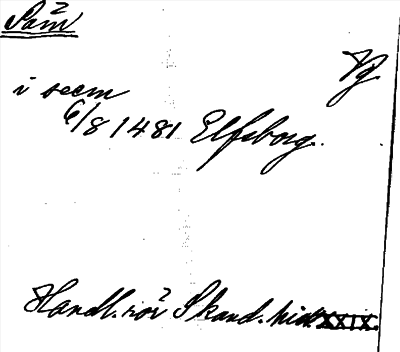 Säm
Vg
i seem
6/8 1481 Elfsborg.
Handl. rör Skand. hist. XXIX.